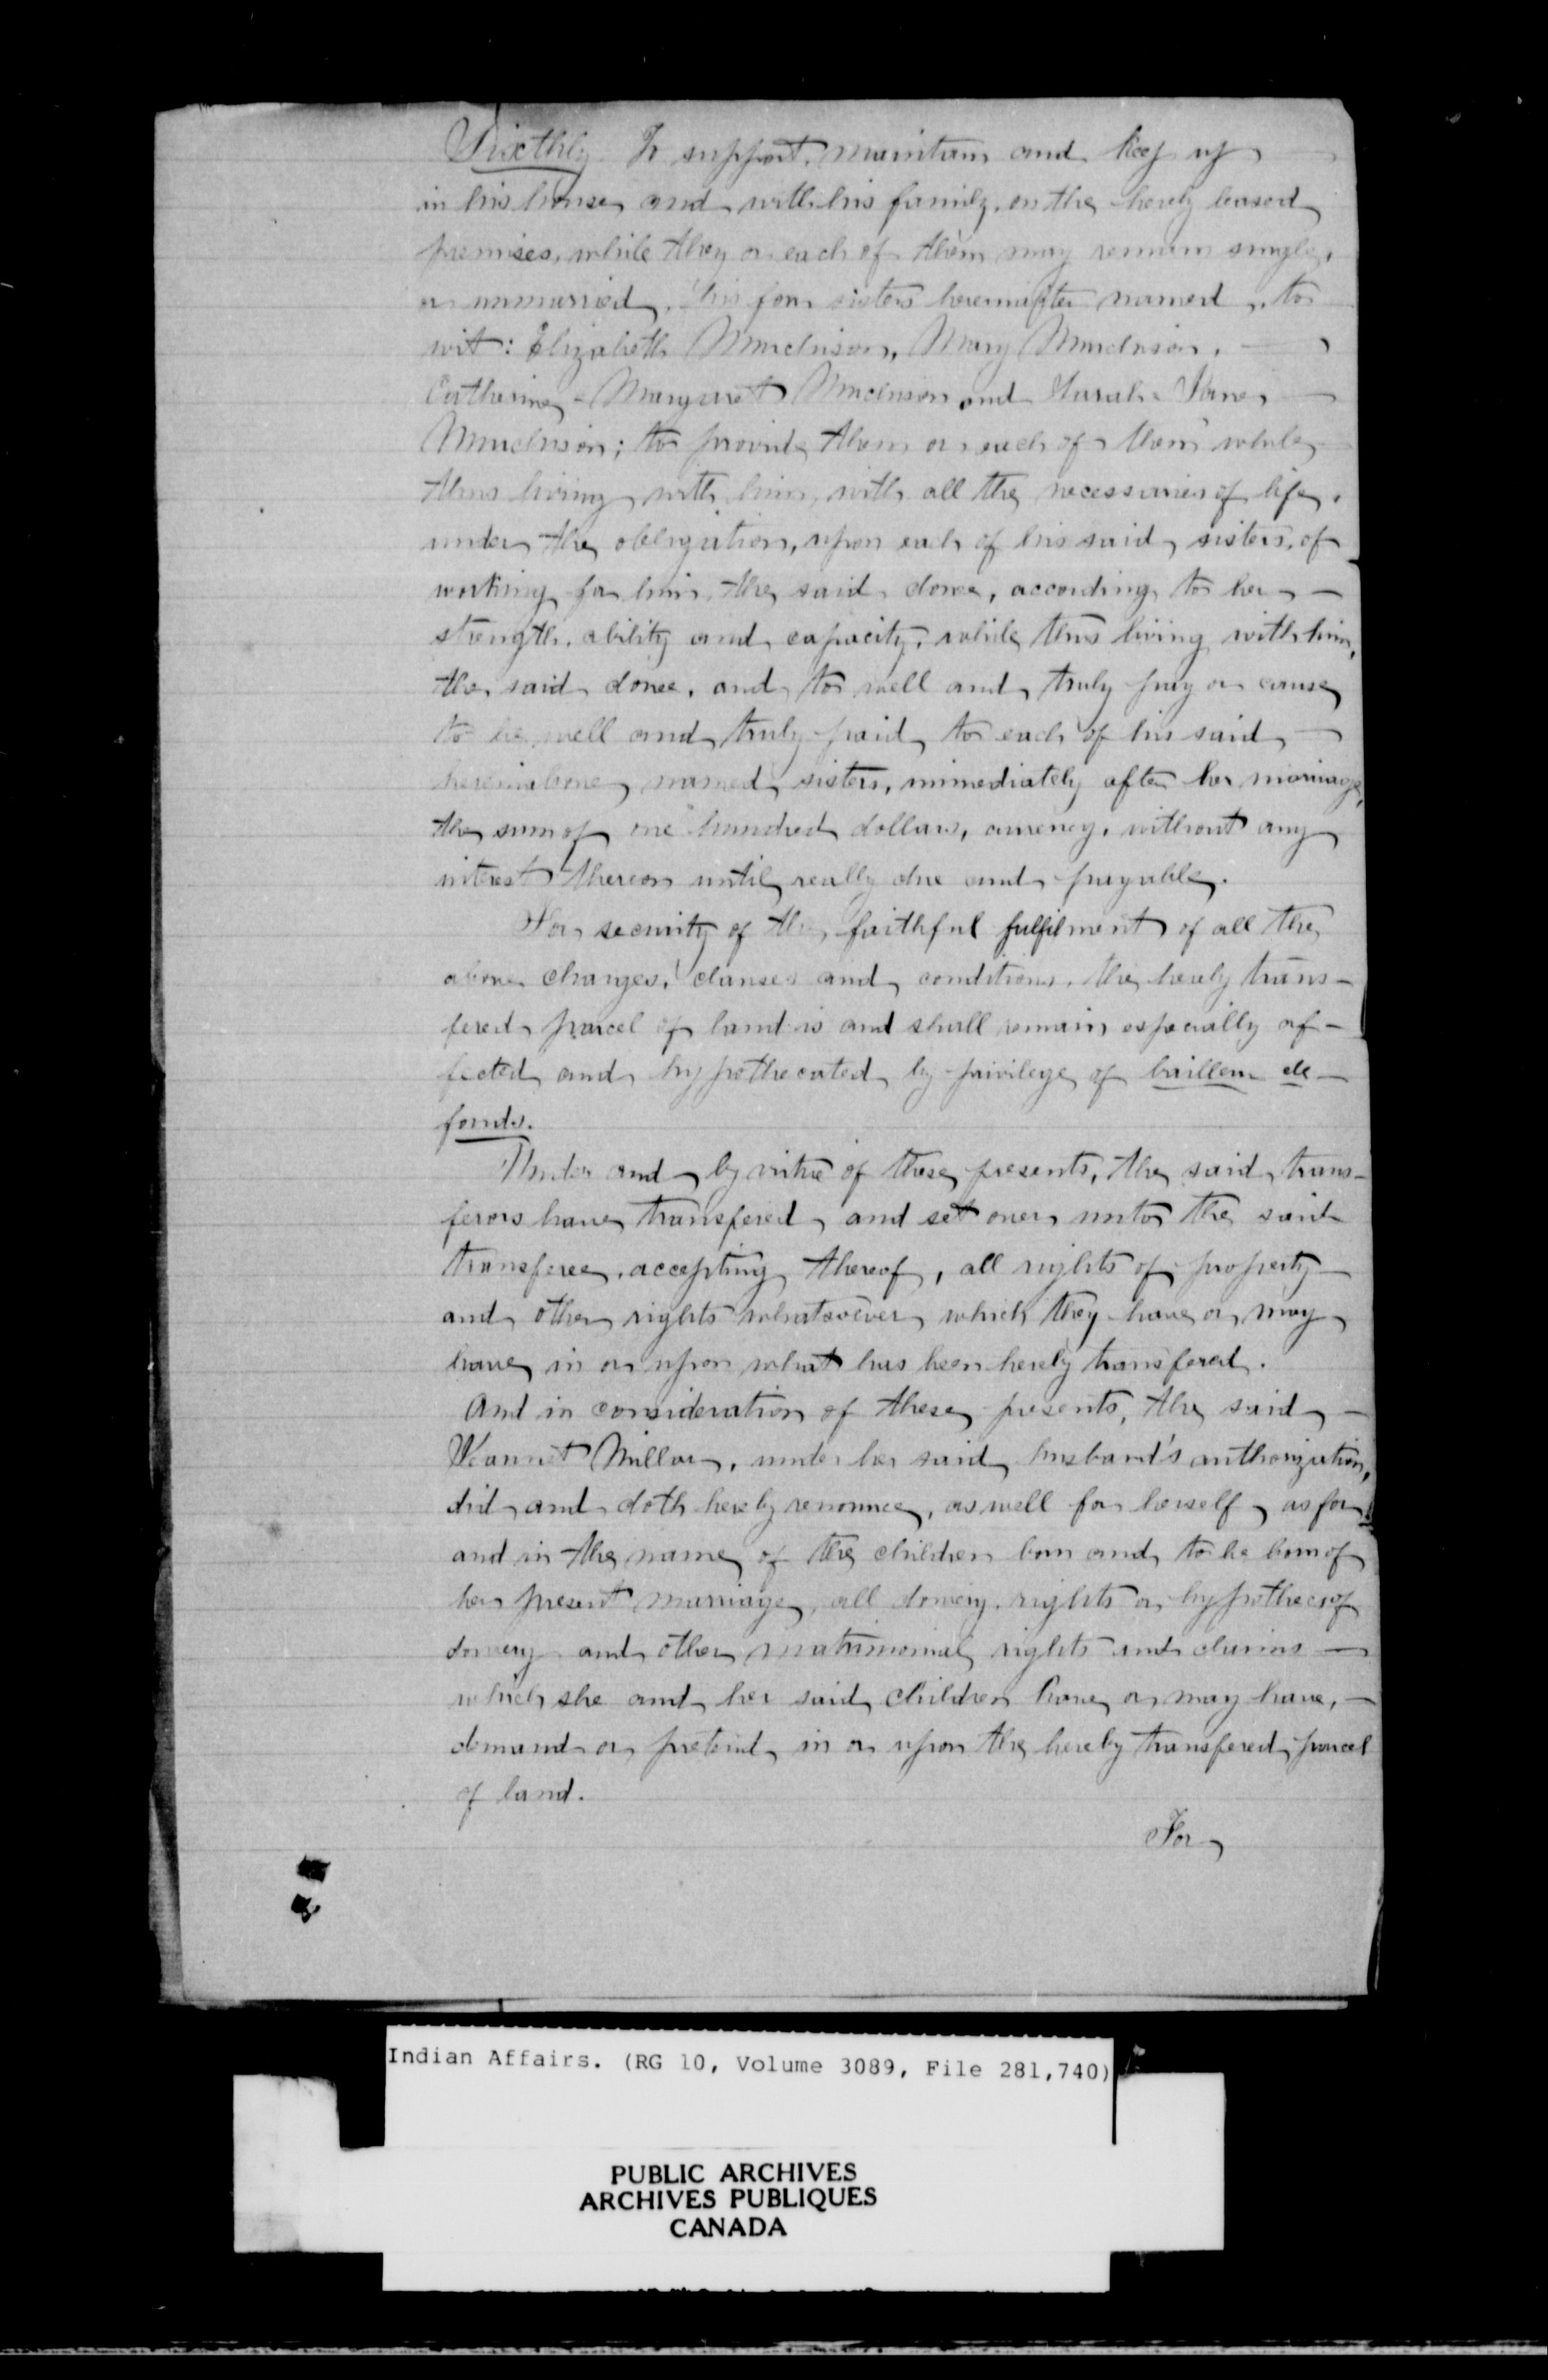 Sixthly To support, maintain and keep up
in his house and with his family, on the hereby leased
premises, while they or each of them may remain single,
or unmarried, his four sisters hereinafter named, to
wit: Elizabeth Murchison, Mary Murchison, —
Catherine-Margaret Murchison and Sarah-Jane —
Murchison; to provide them or each of them while
thus living with him, with all the necessaries of life,
under the obligation, upon each of his said sisters, of
working for him, the said donee, according to her —
strength, ability and capacity, while thus living with him,
the said donee, and to well and truly pay or cause
to be well and truly paid to each of his said —
hereinabove named sisters, immediately after her marriage,
the sum of one hundred dollars, currency, without any
interest thereon until really due and payable.
For security of the faithful fulfilment of all the
above charges, clauses and conditions, the hereby trans-
fered parcel of land is and shall remain especially af-
fected and hypothecated by privilege of bailleur de —
fonds.
Under and by virtue of these presents, the said trans-
ferors have transfered and set over unto the said
transferee, accepting thereof, all rights of property —
and other rights whatsoever which they have or may
have in or upon what has been hereby transfered.
And in consideration of these presents, the said —
Millar, under her said husband's authorization,
did and doth hereby renounce, as well for herself as for
and in the name of the children born and to be born of
her present marriage, all dowery rights or hypothecs of
dowery and other matrimonial rights and claims —
which she and her said children have or may have, —
demand or pretend in or upon the hereby transfered parcel
of land.
For
Indian Affairs. (RG 10, Volume 3089, File 281,740)
PUBLIC ARCHIVES
ARCHIVES PUBLIQUES
CANADA